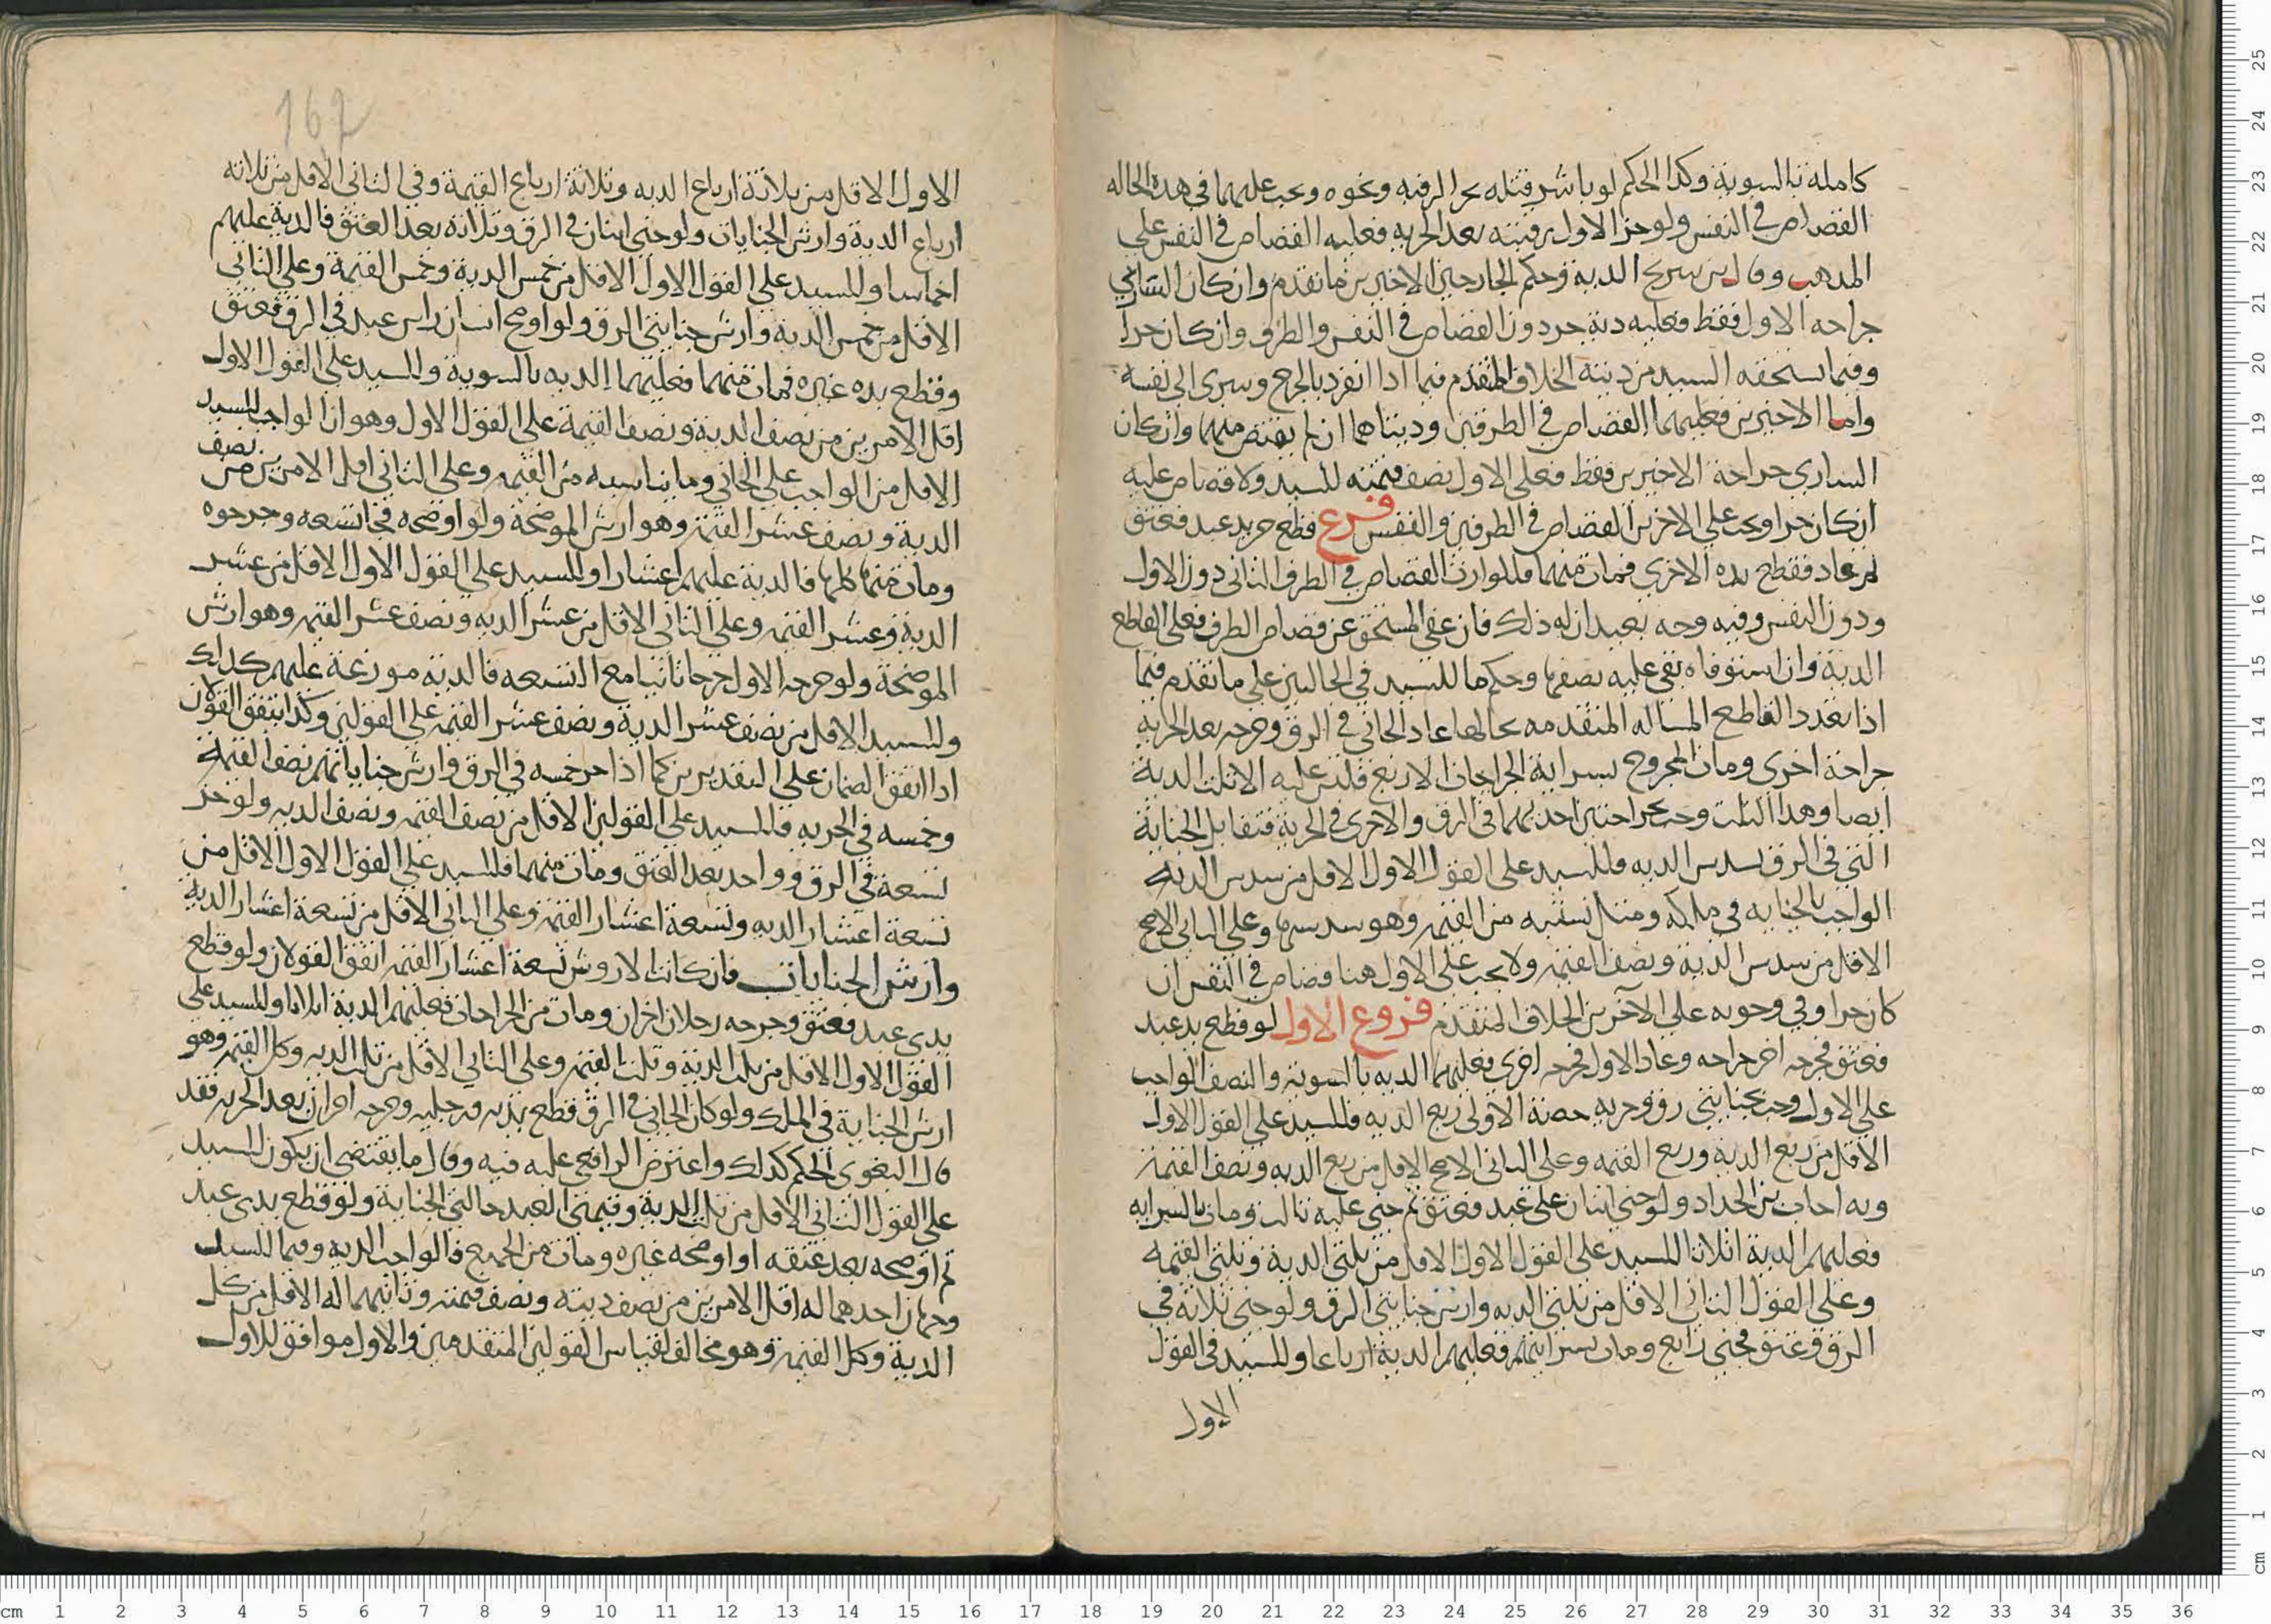 كامله بالسوية وكذا الحكم لو باشر قتله بحز الرقبه ونحوه ويجب عليهما في هذه الحاله
القصاص في النفس ولو حز الاول رقبته بعد الحرية فعليه القصاص في النفس علي
المذهب وقال بن سريج الدية وحكم الجارحين الاخيرين ما تقدم وان كان الساري
جراحه الاول فقط فعليه دية حر دون القصاص في النفس والطرف وان كان حرا
وفيما يستحقه السيد من ديته الخلاف المتقدم فيما اذا انفرد بالجرح وسرى الى نفسه
واما الاخيرين فعليهما القصاص في الطرفين وديتاهما ان لم يقتص منهما وان كان
الساري جراحة الاخيرين فقط فعلى الاول نصف قيمته للسيد ولا قصاص عليه
ان كان حرا ويجب علي الاخرين القصاص في الطرفين والنفس فرع قطع حر يد عبد فعتق
ثم عاد فقطع يده الاخري فمات منهما فللوارث القصاص في الطرف الثاني دون الاول
ودون النفس وفيه وجه بعيد ان له ذلك فان عفى المستحق عن قصاص الطرف فعلى القاطع
الدية وان استوفاه بقي عليه نصفها وحكم ما للسيد في الحالين على ما تقدم فيما
اذا تعدد القاطع المساله المتقدمه بحالها عاد الجاني في الرق وجرحه بعد الحرية
جراحة اخرى ومات المجروح بسراية الجراحات الاربع فليس عليه الا ثلث الدية
ايضا وهذا الثلث وجب بجراحتين احديهما في الرق والاخرى في الحرية فتقابل الجناية
التي في الرق سدس الديه وللسيد على القول الاول الاقل من سدس الدية
الواجب بالجنايه في ملكه ومثل نسبته من القيمة وهو سدسها وعلي الثاني الاصح
الاقل من سدس الدية ونصف القيمة ولا يجب على الاول هنا قصاص في النفس ان
كان حرا وفي وجوبه على الآخرين الخلاف المتقدم فروع الاول لو قطع يد عبد
فعتق فجرحه اخر جراحه وعاد الاول فجرحه اخرى فعليهما الديه بالسوية والنصف الواجب
على الاول وجب بجنايتي رق وحريه حصة الاولى ربع الديه فللسيد على القول الاول
الاقل من ربع الدية وربع القيمه وعلى الثاني الاصح الاقل من ربع الديه ونصف القيمة
وبه اجاب بن الحداد ولو جنى اثنان على عبد فعتق ثم جنى عليه ثالث ومات بالسرايه
فعليهم الدية اثلاثا للسيد على القول الاول الاقل من ثلثي الدية وثلثي القيمه
وعلي القول الثاني الاقل من ثلثي الديه وارش جنايتي الرق ولو جنى ثلاثة في
الرق فعتق فجني رابع ومات بسرايتهم فعليهم الدية ارباعا وللسيد في القول
الاول
167
الاول الاقل من ثلاثة ارباع الديه وثلاثة ارباع القيمة وفي الثاني الاقل من ثلاثه
ارباع الدية وارش الجنايات ولو جنى اثنان في الرق وثلاثة بعد العتق فالدية عليهم
اخماسا وللسيد علي القول الاول الاقل من خمس الدية وخمس القيمة وعلي الثاني
الاقل من خمس الدية وارش جنايتي الرق ولو اوضح انسان راس عبد في الرق فعتق
وقطع يده غيره فمات منهما فعليهما الديه بالسوية وللسيد علي القول الاول
اقل الامرين من نصف الدية ونصف القيمة على القول الاول وهو ان الواجب للسيد
الاقل من الواجب علي الجاني وما يناسبه من القيمه وعلى الثاني اقل الامرين من نصف
الدية ونصف عشر القيمة وهو ارش الموضحة ولو اوضحه فجا تسعه وجرحوه
ومات منها كلها فالدية عليهم اعشارا وللسيد علي القول الاول الاقل من عشر
الدية وعشر القيمه وعلى الثاني الاقل من عشر الديه ونصف عشر القيمه وهو ارش
الموضحة ولو جرحه الاول جرحا ثانيا مع التسعه فالدية موزعة عليهم كذلك
وللسيد الاقل من نصف عشر الدية ونصف عشر القيمة على القولين وكذا يتفق القولان
اذا اتفق الضمان على التقديرين كما اذا جرحه خمسه في الرق وارش جناياتهم نصف القيمة
وخمسه في الحريه فللسيد علي القولين الاقل من نصف القيمه ونصف الديه ولو جرح
تسعة في الرق وواحد بعد العتق ومات منهما فللسيد علي القول الاول الاقل من
تسعة اعشار الديه وتسعة اعشار القيمة وعلي الثاني الاقل من تسعة اعشار الدية
وارش الجنايات فان كانت الاروش تسعة اعشار القيمه اتفق القولان ولو قطع
يدي عبد فعتق وجرحه رجلان اخران ومات من الجراحات فعليهم الدية اثلاثا وللسيد على
القول الاول الاقل من ثلث الدية وثلث القيمه وعلى الثاني الاقل من ثلث الديه وكل القيمه وهو
ارش الجناية في الملك ولو كان الجاني في الرق قطع يديه ورجليه وجرحه اخران بعد الحريه فقد
قال البغوي الحكم كذلك واعترض الرافعي عليه فيه وقال ما يقتضي ان يكون للسيد
على القول الثاني الاقل من ثلث الدية وقيمتي العبد حالتي الجناية ولو قطع يدي عبد
ثم اوضحه بعد عتقه او اوضحه غيره ومات من الجميع فالواجب الديه وفيما للسيد
وجهان احدهما له اقل الامرين من نصف ديته ونصف قيمته وثانيهما له الاقل من كل
الدية وكل القيمة وهو مخالف لقياس القولين المتقدمين والاول موافق للاول